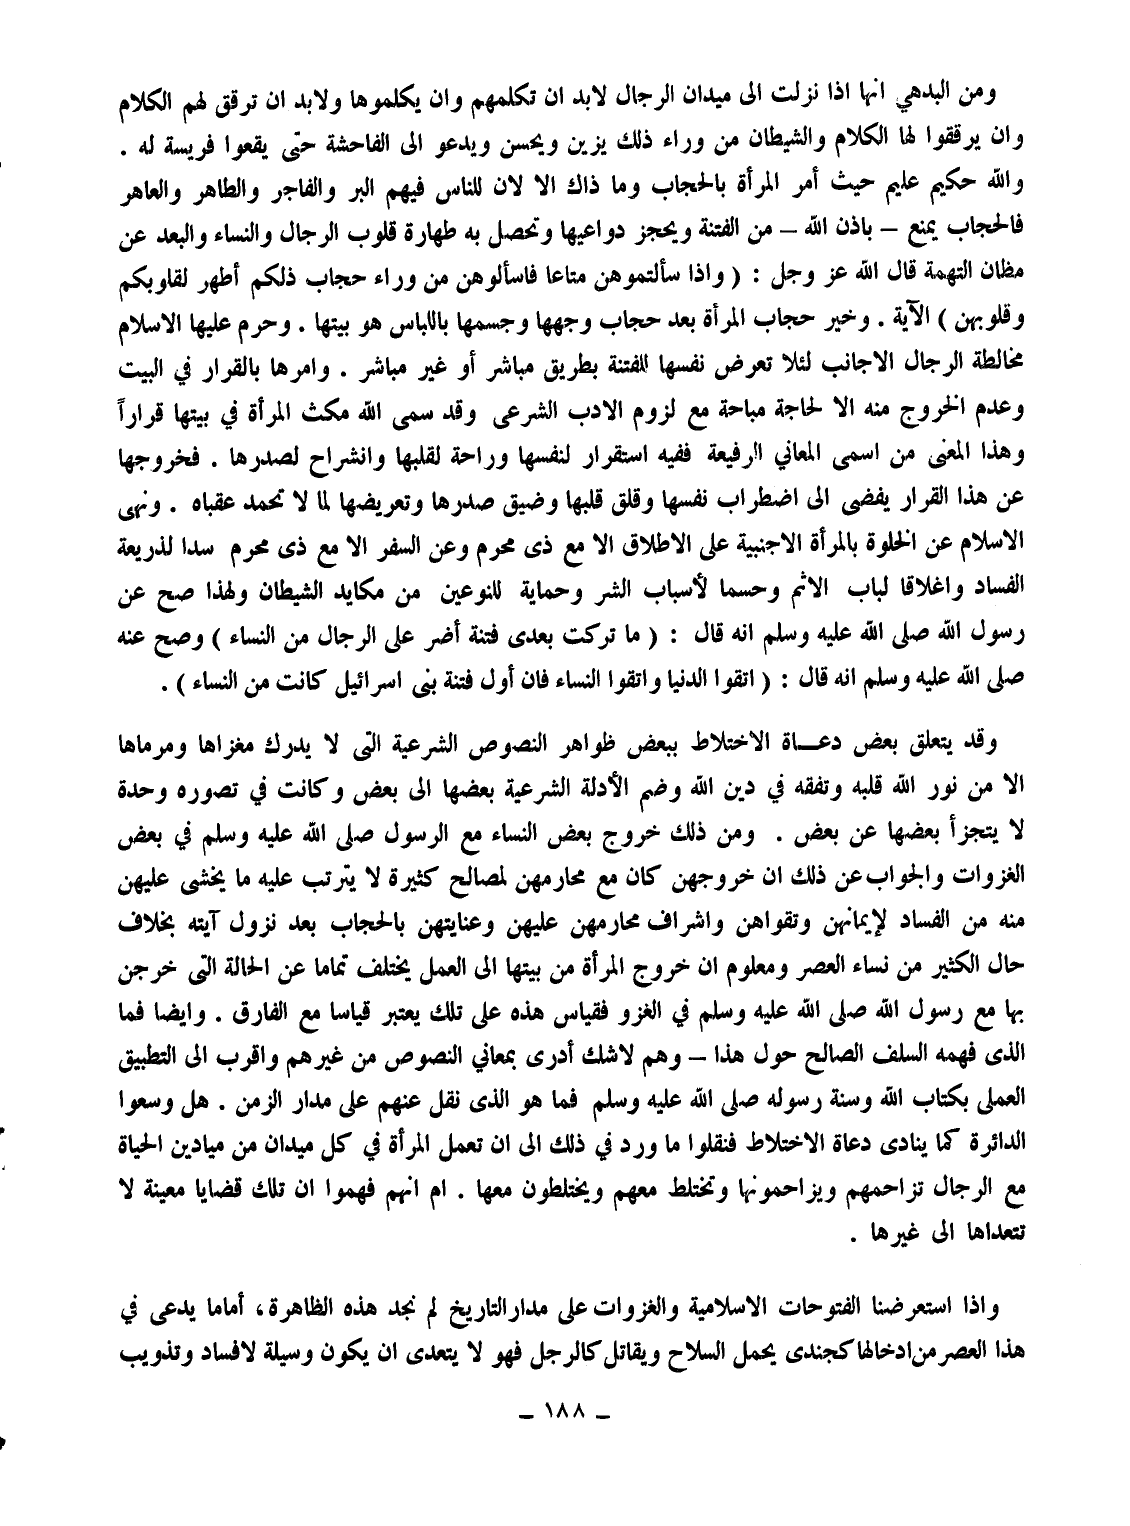 ومن البدهي انها اذا نزلت الى ميدان الرجال لابد ان تكلمهم وان يكلموها ولابد ان ترقق لهم الكلام
وان يرققوا لها الكلام والشيطان من وراء ذلك يزين ويحسن ويدعو الى الفاحشة حتى يقعوا فريسة له .
والله حكيم عليم حيث أمر المرأة بالحجاب وما ذاك الا لان للناس فيهم البر والفاجر والطاهر والعاهر
فالحجاب يمنع – باذن الله – من الفتنة ويحجز دواعيها وتحصل به طهارة قلوب الرجال والنساء والبعد عن
مظان التهمة قال الله عز وجل : ( واذا سألتموهن متاعا فاسألوهن من وراء حجاب ذلكم أطهر لقاوبكم
وقلوبهن ) الآية . وخير حجاب المرأة بعد حجاب وجهها وجسمها باللباس هو بيتها . وحرم عليها الاسلام
مخالطة الرجال الاجانب لئلا تعرض نفسها للفتنة بطريق مباشر أو غير مباشر . وامرها بالقرار في البيت
وعدم الخروج منه الا لحاجة مباحة مع لزوم الادب الشرعى وقد سمى الله مكث المرأة في بيتها قراراً
وهذا المعنى من اسمى المعاني الرفيعة ففيه استقرار لنفسها وراحة لقلبها وانشراح لصدرها . فخروجها
عن هذا القرار يفضى الى اضطراب نفسها وقلق قلبها وضيق صدرها وتعريضها لما لا تحمد عقباه . ونهى
الاسلام عن الخلوة بالمرأة الاجنبية على الاطلاق الا مع ذى محرم وعن السفر الا مع ذى محرم سدا لذريعة
الفساد واغلاقا لباب الاثم وحسما لأسباب الشر وحماية للنوعين من مكايد الشيطان ولهذا صح عن
رسول الله صلى الله عليه وسلم انه قال : ( ما تركت بعدى فتنة أضر على الرجال من النساء ) وصح عنه
صلى الله عليه وسلم انه قال : ( اتقوا الدنيا واتقوا النساء فان أول فتنة بنى اسرائيل كانت من النساء ) .
وقد يتعلق بعض دعاة الاختلاط ببعض ظواهر النصوص الشرعية التى لا يدرك مغزاها ومرماها
الا من نور الله قلبه وتفقه في دين الله وضم الأدلة الشرعية بعضها الى بعض وكانت في تصوره وحدة
لا يتجزأ بعضها عن بعض . ومن ذلك خروج بعض النساء مع الرسول صلى الله عليه وسلم في بعض
الغزوات والجواب عن ذلك ان خروجهن كان مع محارمهن لمصالح كثيرة لا يترتب عليه ما يخشى عليهن
منه من الفساد لإيمانهن وتقواهن واشراف محارمهن عليهن وعنايتهن بالحجاب بعد نزول آيته بخلاف
حال الكثير من نساء العصر ومعلوم ان خروج المرأة من بيتها الى العمل يختلف تماما عن الحالة التى خرجن
بها مع رسول الله صلى الله عليه وسلم في الغزو فقياس هذه على تلك يعتبر قياسا مع الفارق . وايضا فما
الذى فهمه السلف الصالح حول هذا – وهم لاشك أدرى بمعاني النصوص من غيرهم واقرب الى التطبيق
العملى بكتاب الله وسنة رسوله صلى الله عليه وسلم فما هو الذى نقل عنهم على مدار الزمن . هل وسعوا
الدائرة كما ينادى دعاة الاختلاط فنقلوا ما ورد في ذلك الى ان تعمل المرأة في كل ميدان من ميادين الحياة
مع الرجال تزاحمهم ويزاحمونها وتختلط معهم ويختلطون معها . ام انهم فهموا ان تلك قضايا معينة لا
تتعداها الى غيرها .
واذا استعرضنا الفتوحات الاسلامية والغزوات على مدار التاريخ لم نجد هذه الظاهرة، أماما يدعى في
هذا العصر من ادخالها كجندى يحمل السلاح ويقاتل كالرجل فهو لا يتعدى ان يكون وسيلة لافساد وتذويب
– ١٨٨ –